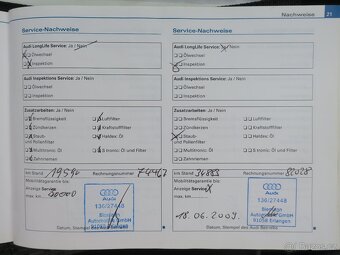 Nachweise
21
Service-Nachweise
Audi LongLife Service: Ja / Nein
Ölwechsel
Inspektion
Audi Inspektions Service: Ja / Nein
Ölwechsel
Inspektion
Zusatzarbeiten: Ja / Nein
Bremsflüssigkeit
Luftfilter
Zündkerzen
Kraftstofffilter
Staub
und Pollenfilter
Haldex: Öl
Multitronic: Öl
S tronic: Öl und Filter
Zahnriemen
km Stand
Rechnungsnummer
Mobilitätsgarantie bis:
Anzeige Service
max. km
Audi
136/27448
Datum, Stempel
Service-Nachweise
Audi LongLife Service: Ja / Nein
Ölwechsel
Inspektion
Audi Inspektions Service: Ja / Nein
Ölwechsel
Inspektion
Zusatzarbeiten: Ja / Nein
Bremsflüssigkeit
Luftfilter
Zündkerzen
Kraftstofffilter
Staub
und Pollenfilter
Haldex: Öl
Multitronic: Öl
S tronic: Öl und Filter
Zahnriemen
km Stand
Rechnungsnummer
Mobilitätsgarantie bis:
Anzeige Service
max. km
Audi
136/27448
91058 Erlangen
18.06.2009
Datum, Stempel des Audi Betriebs